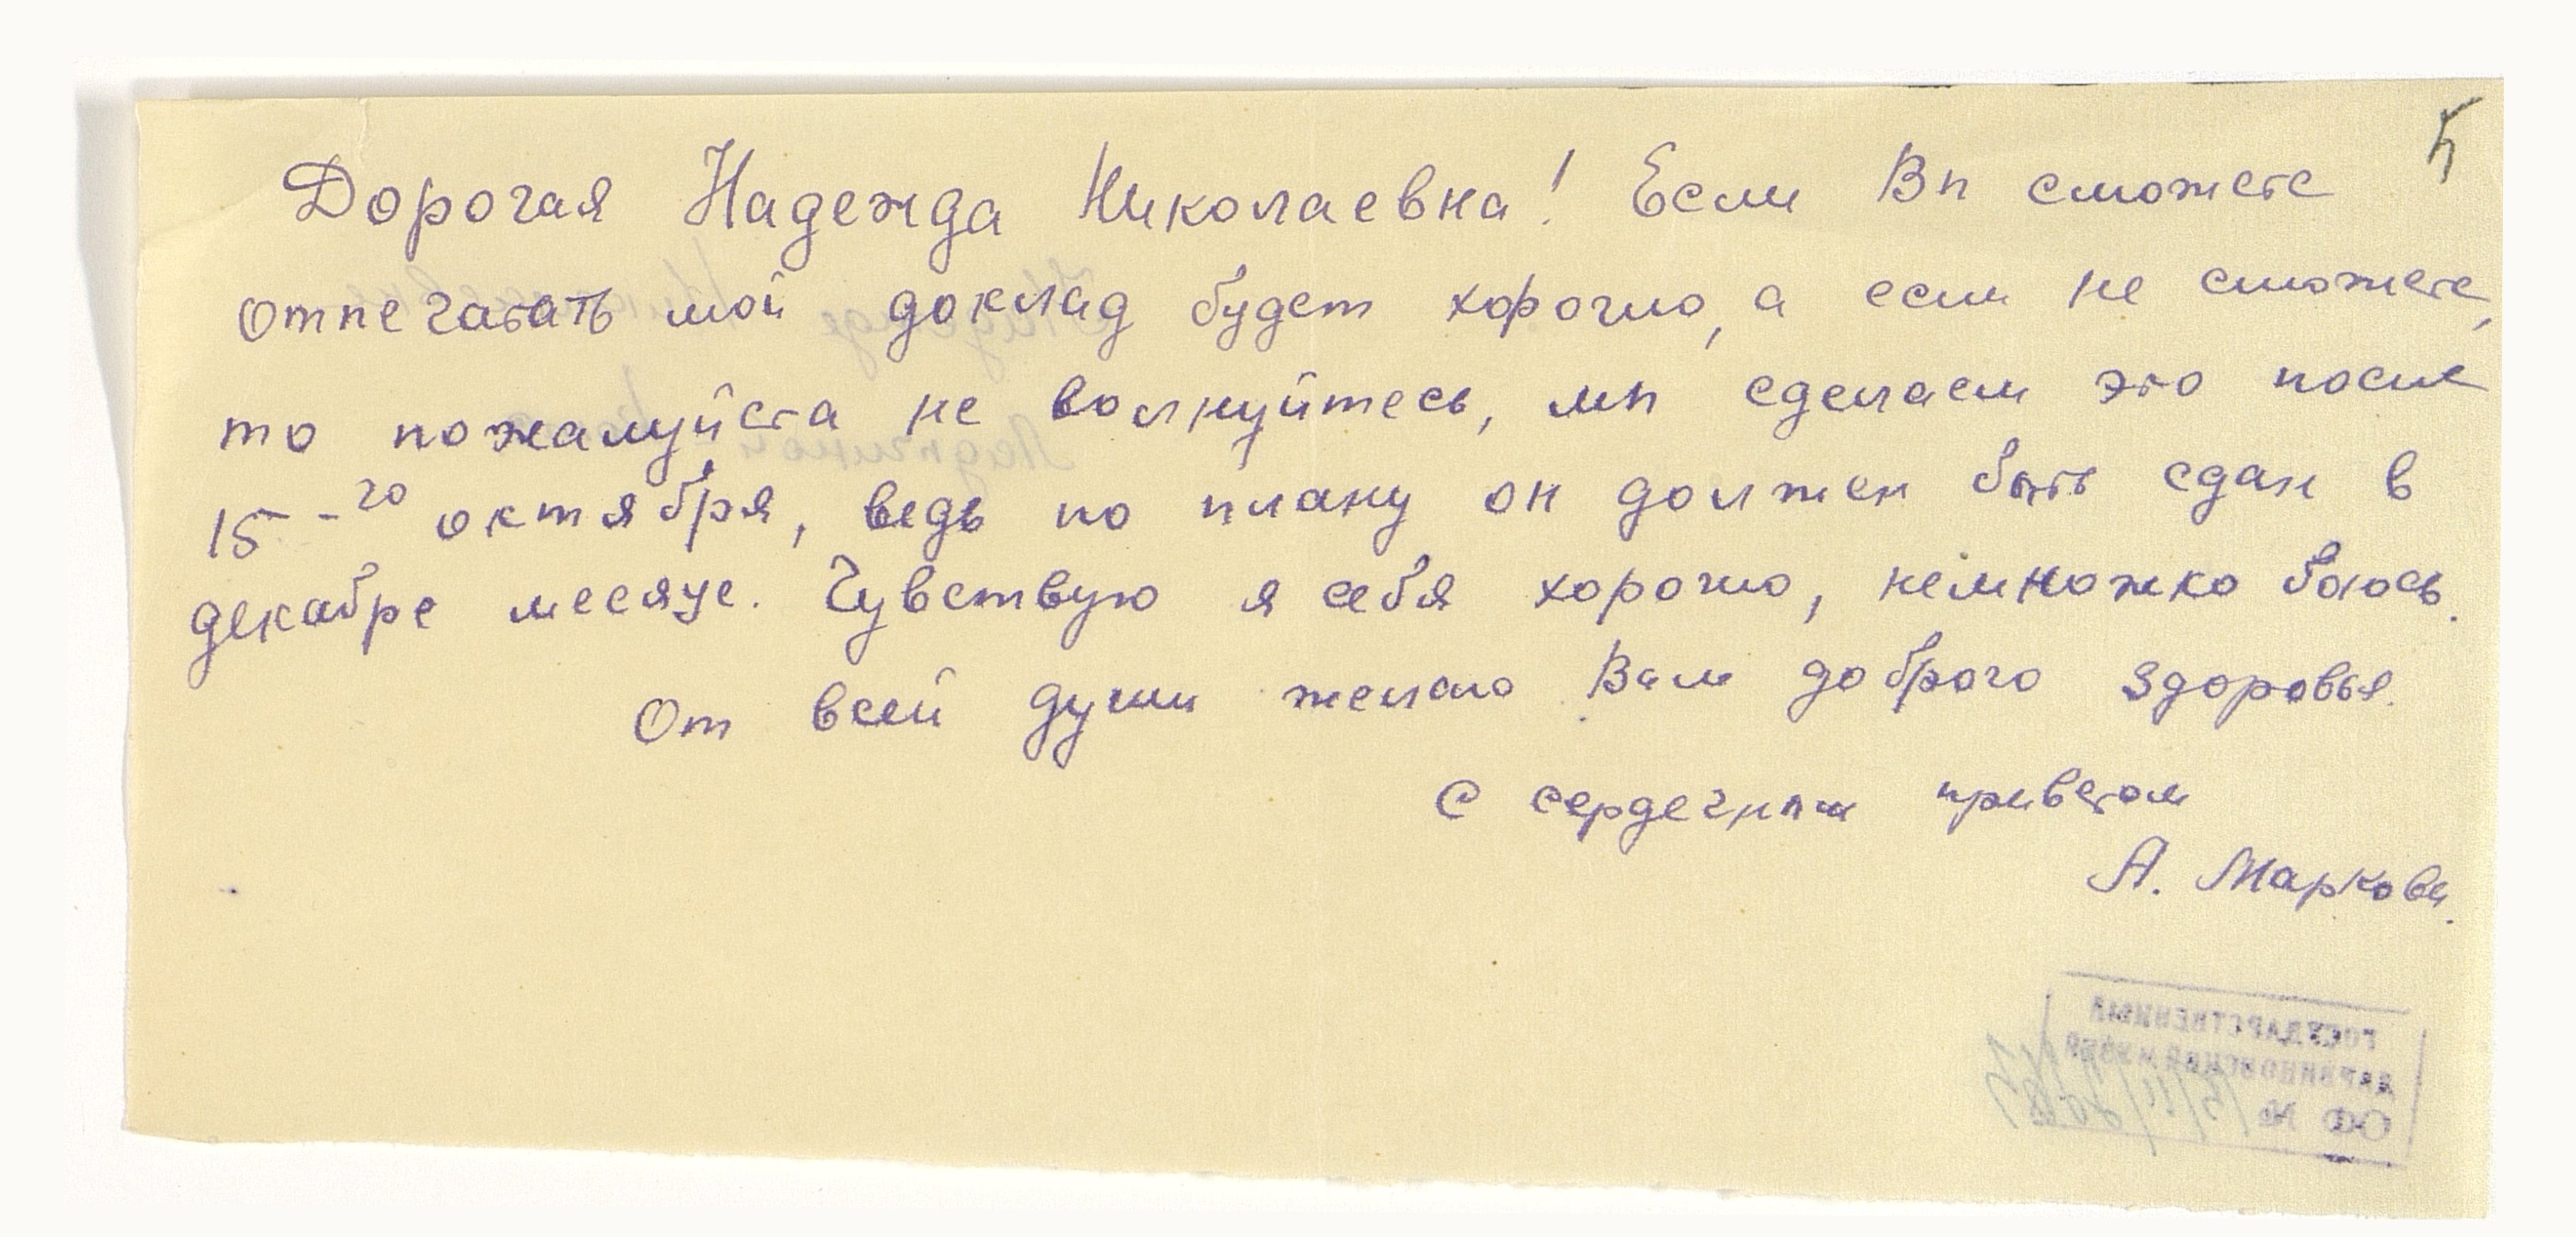 5
Дорогая Надежда Николаевна! Если Вы сможете
отпечатать мой доклад будет хорошо, а если не сможете,
то пожалуйста не волнуйтесь, мы сделаем это после
15-20 октября, ведь по плану он должен быть сдан в
декабре месяце. Чувствую я себя хорошо, немножко боюсь.
От всей души желаю Вам доброго здоровья.
С сердечным приветом
А. Маркова.
ГОСУДАРСТВЕННЫЙ
ДАРВИНОВСКИЙ МУЗЕЙ
ОФ №